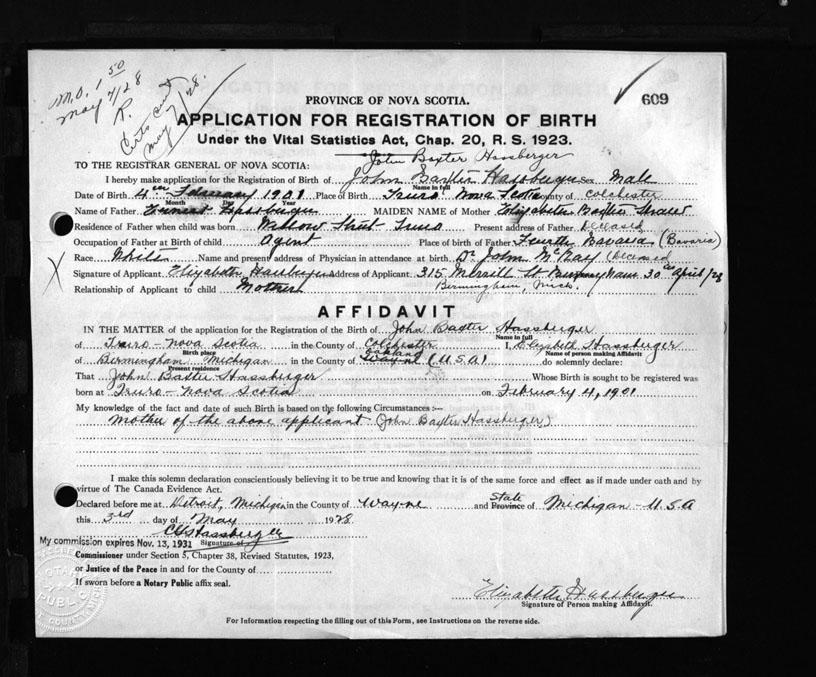 M.O. 1 50
May 7/28
R.
Certs sent
May 7/28.
609
PROVINCE OF NOVA SCOTIA.
APPLICATION FOR REGISTRATION OF BIRTH
Under the Vital Statistics Act, Chap. 20, R. S. 1923.
John Baxter Hassberger
TO THE REGISTRAR GENERAL OF NOVA SCOTIA:
I hereby make application for the Registration of Birth of John Baxter Hassberger Sex Male
Name in full
Date of Birth 4th February 1901 Place of Birth Truro Nova Scotia County of Colchester
Month Day Year
Name of Father Ernest Hassberger MAIDEN NAME of Mother Elizabeth Baxter
Residence of Father when child was born Willow Street Truro Present address of Father Deceased
Occupation of Father at Birth of child Agent Place of birth of Father Bavaria (Bavaria)
Race White Name and present address of Physician in attendance at birth Dr John McKay (Deceased
Signature of Applicant Elizabeth Hassberger Address of Applicant 315 Merrill St 30 April/28
Relationship of Applicant to child Mother Birmingham, Mich.
AFFIDAVIT
IN THE MATTER of the application for the Registration of the Birth of John Baxter Hassberger
Name in full
of Truro - Nova Scotia in the County of Colchester I, Elizabeth Hassberger
Birth place Oakland Name of person making Affidavit
of Birmingham Michigan in the County of Wayne (U.S.A) do solemnly declare:
Present residence
That John Baxter Hassberger Whose Birth is sought to be registered was
born at Truro - Nova Scotia on February 4, 1901
My knowledge of the fact and date of such Birth is based on the following Circumstances :—
Mother of the above applicant (John Baxter Hassberger)
I make this solemn declaration conscientiously believing it to be true and knowing that it is of the same force and effect as if made under oath and by
virtue of The Canada Evidence Act.
State
Declared before me at Detroit, Michigan, in the County of Wayne and Province of Michigan - U.S.A
this 3rd day of May 1928.
CWHassberger
My commission expires Nov. 13, 1931 Signature of
Commissioner under Section 5, Chapter 38, Revised Statutes, 1923,
or Justice of the Peace in and for the County of
If sworn before a Notary Public affix seal.
NOTARY
PUBLIC
Elizabeth Hassberger
Signature of Person making Affidavit.
For Information respecting the filling out of this Form, see Instructions on the reverse side.